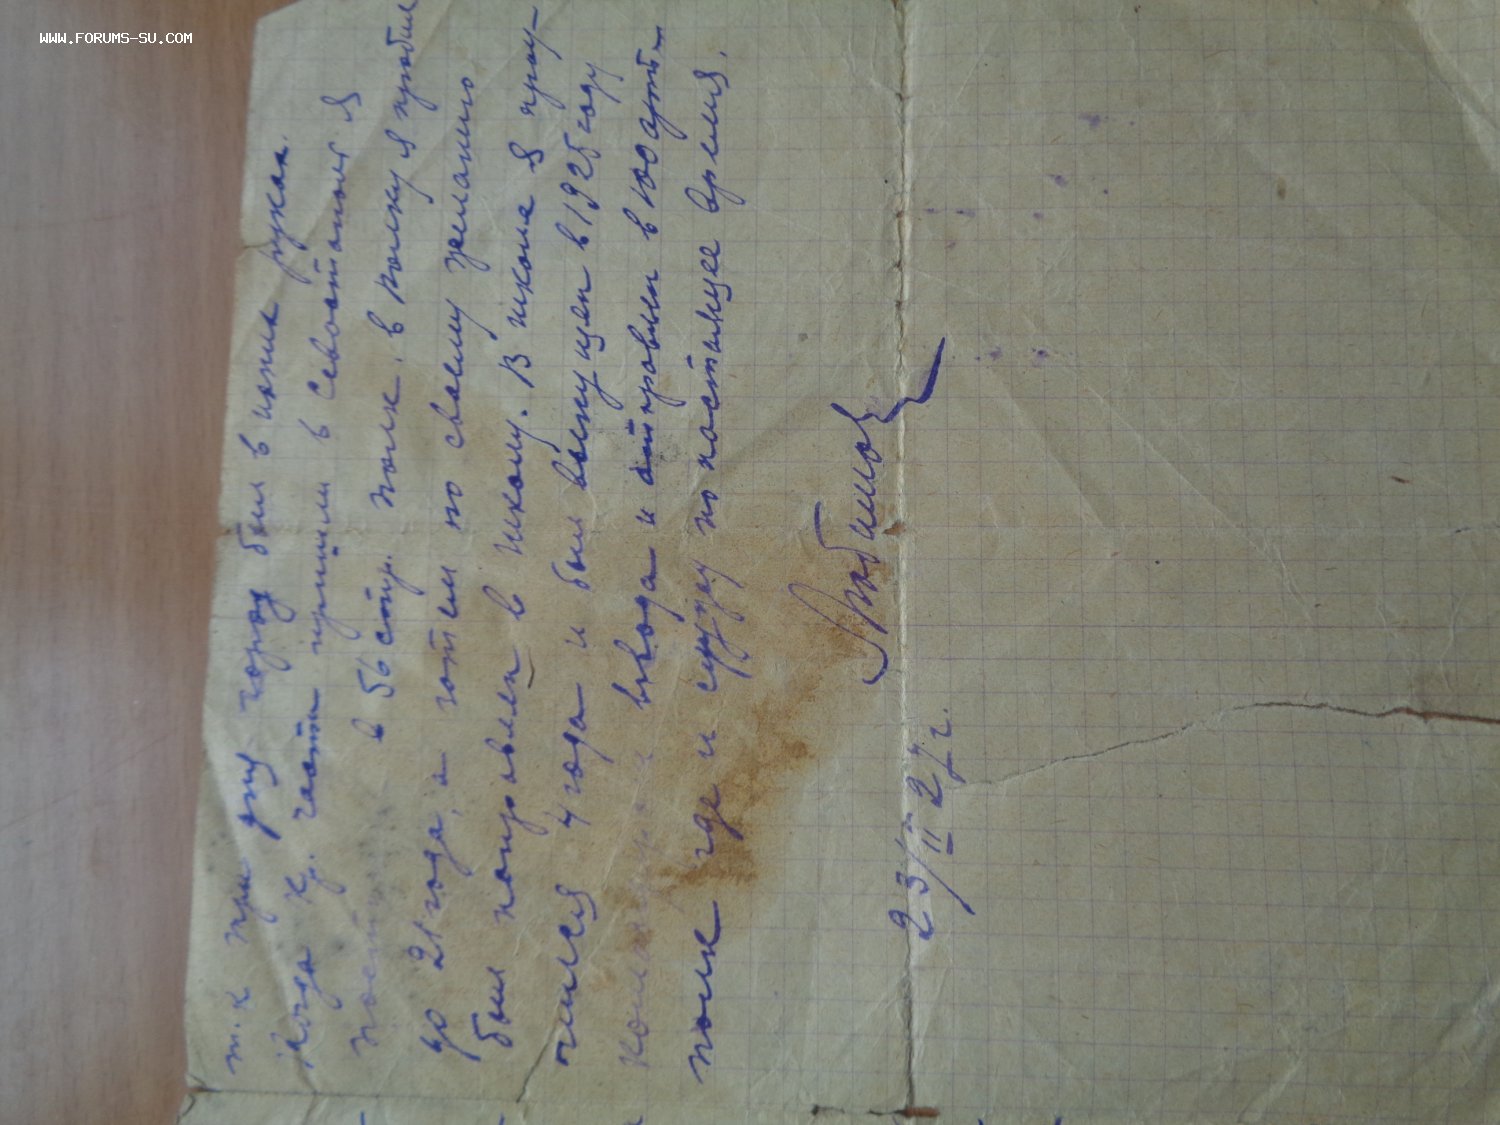 WWW.FORUMS-SU.COM
т.к три дня город был в наших руках.
Когда Кр. части пришли в Севастополь я
поступил в 56 стр. полк. в полку я пробыл
до 21 года, а потом по своему желанию
был направлен в школу. В школе я проу-
чился 4 года и был выпущен в 1925 году
командиром взвода и отправлен в 100 арт.
полк где и служу по настоящее время.
Любимов
23/II 27 г.